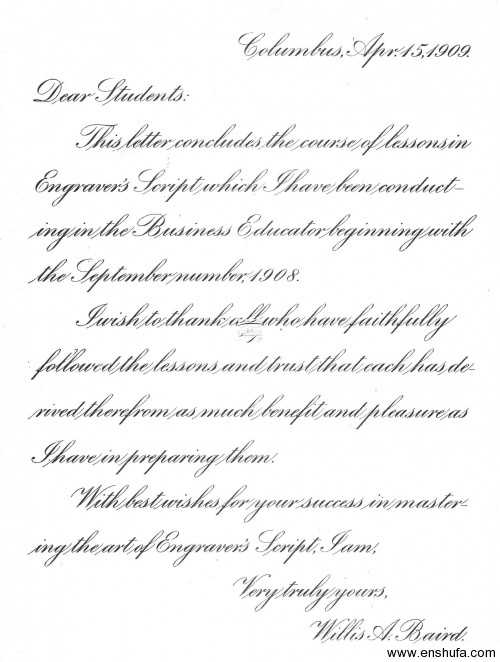 Columbus, Apr. 15, 1909.
Dear Students:
This letter concludes the course of lessons in
Engraver's Script which I have been conduct-
ing in the Business Educator beginning with
the September number, 1908.
I wish to thank all who have faithfully
followed the lessons and trust that each has de-
rived therefrom as much benefit and pleasure as
I have in preparing them.
With best wishes for your success in master-
ing the art of Engraver's Script, I am,
Very truly yours,
Willis A. Baird.
www.enshufa.com